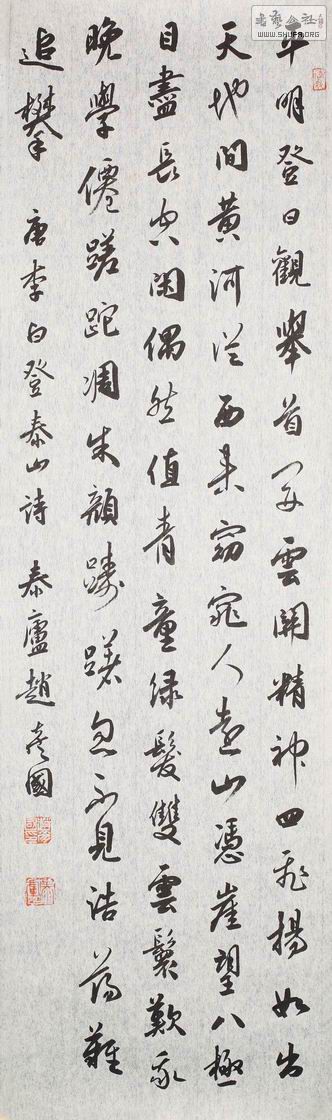 平明登日觀舉首開雲關精神四飛揚如出
天地間黃河從西來窈窕入遠山憑崖望八極
目盡長空閑偶然值青童緑髮雙雲鬟歎我
晚學僊蹉跎凋朱顔躊躇忽不見浩蕩難
追攀 唐李白登泰山詩 泰廬趙彥國
书藝公社
WWW.SHUFA.ORG